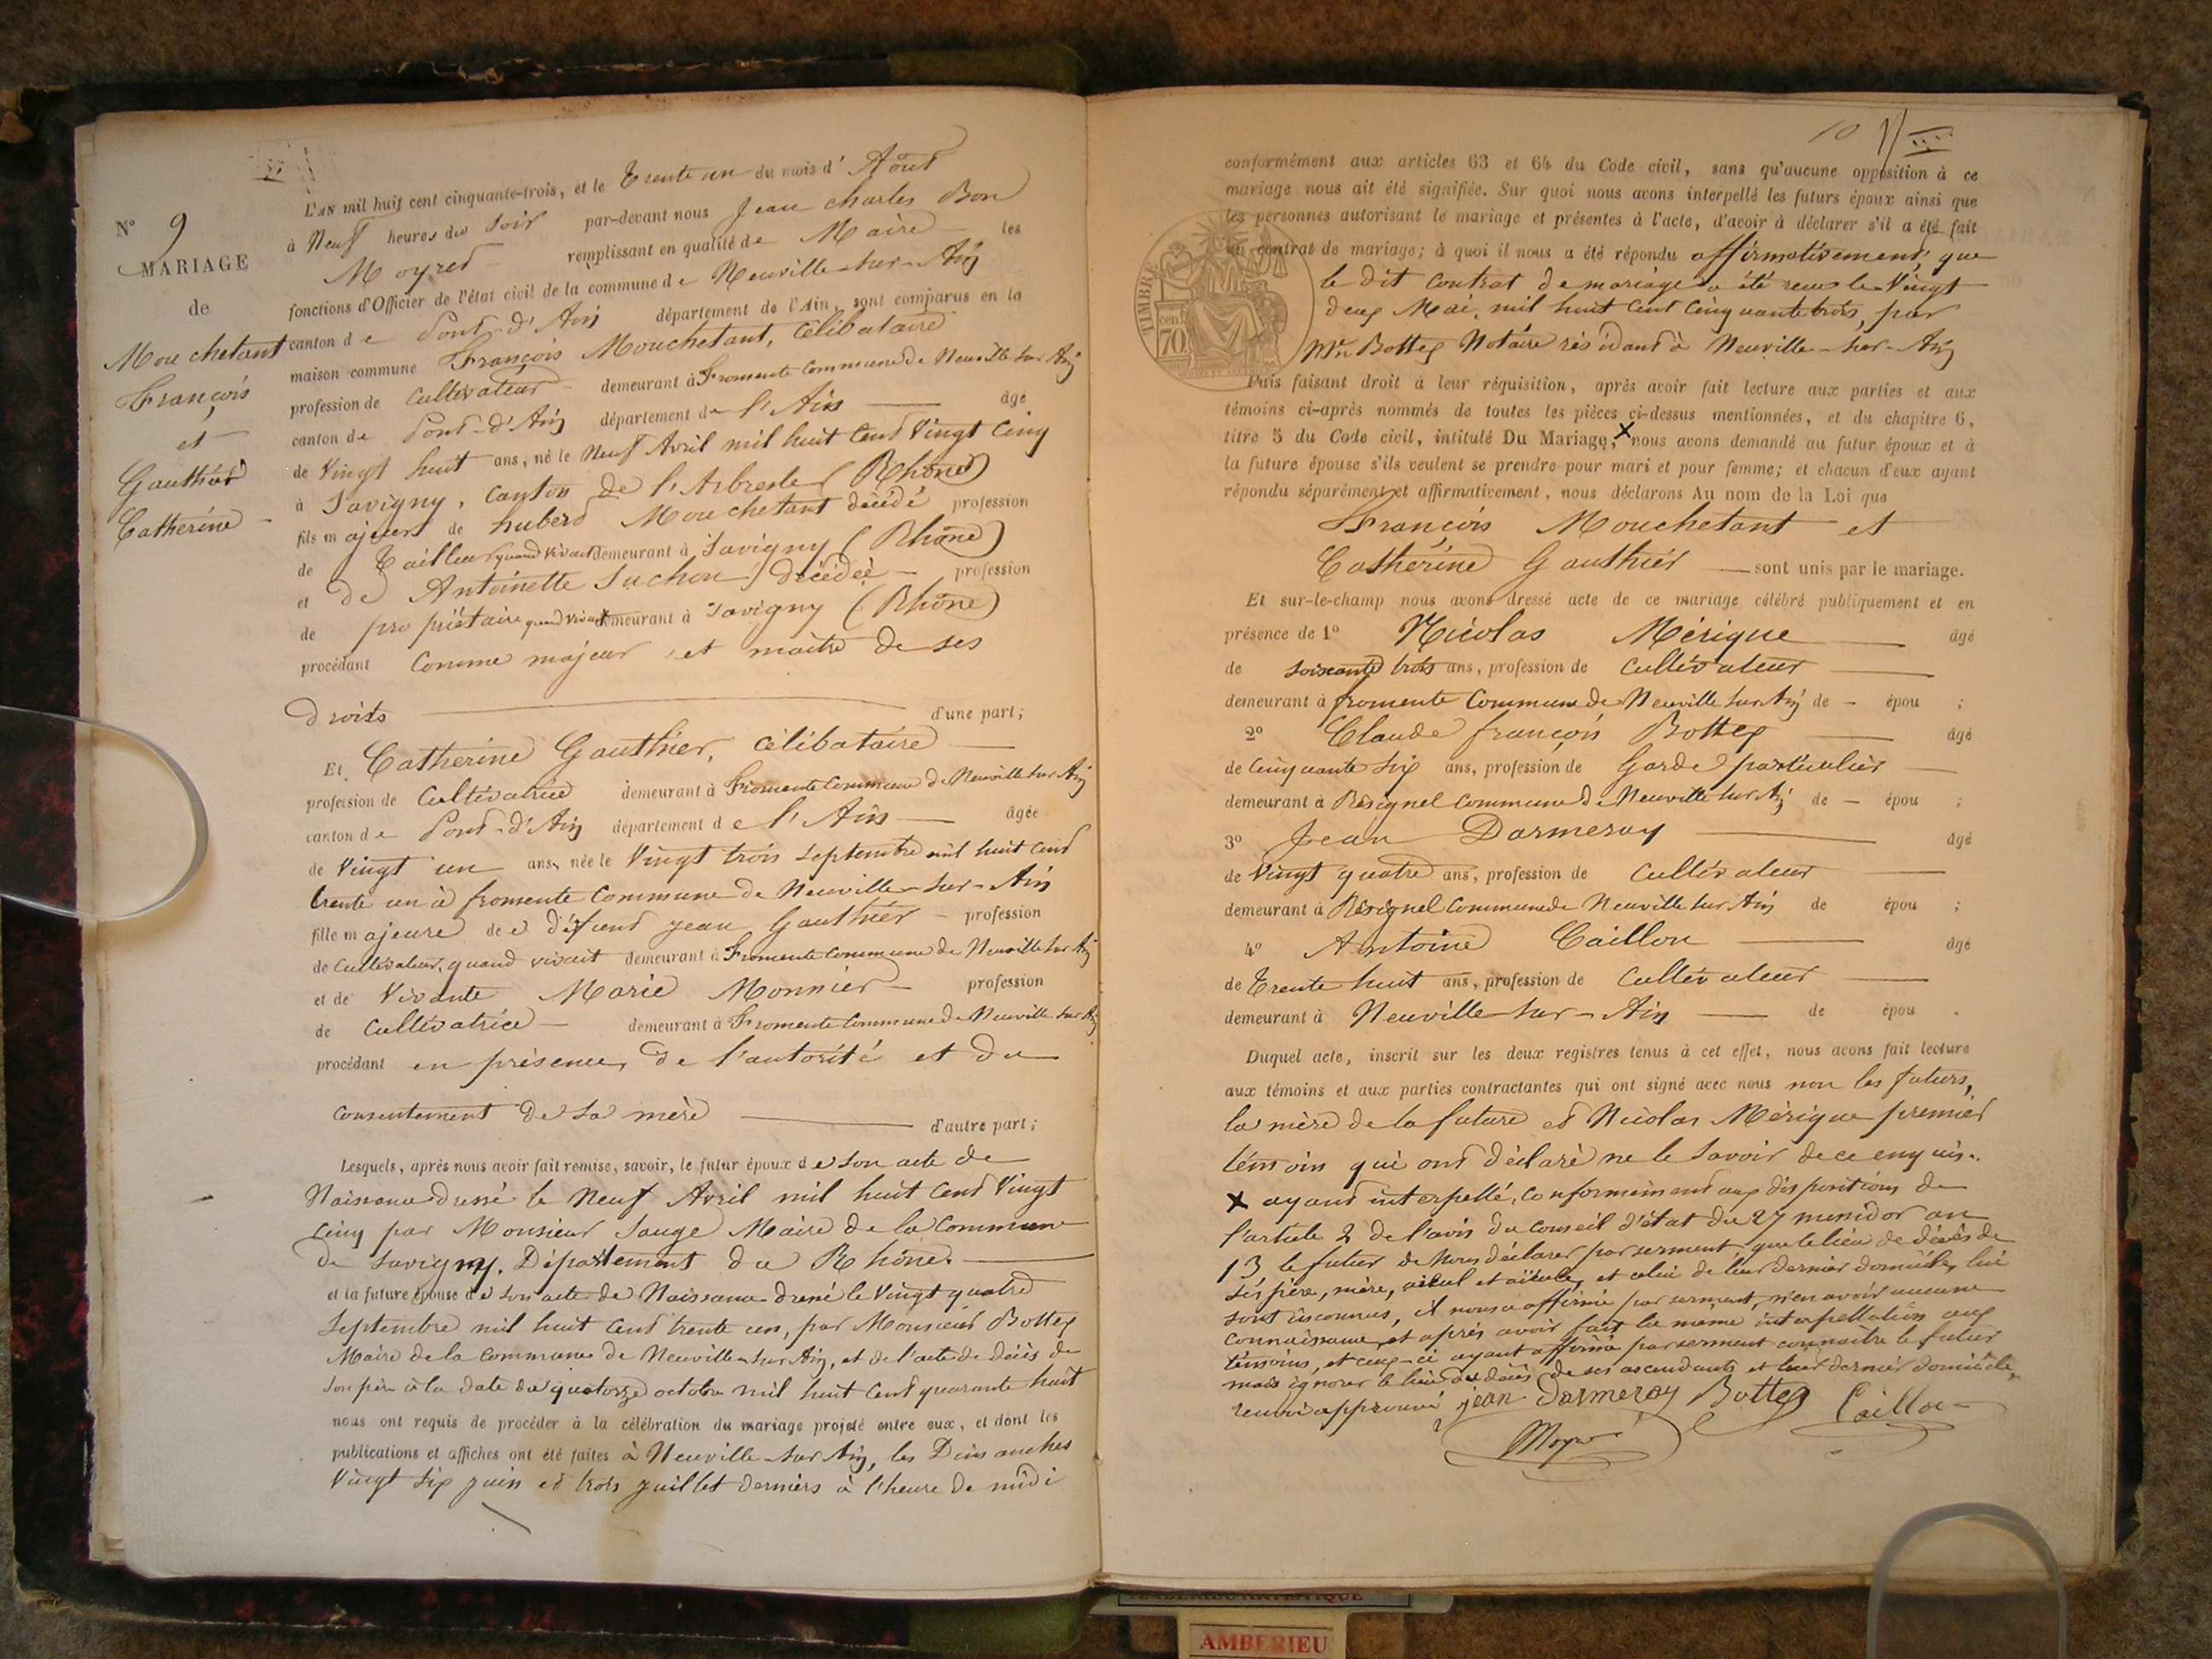 N° 9
MARIAGE
de
Mouchetant
François
et
Gauthier
Catherine
L'AN mil huit cent cinquante-trois, et le Trente un du mois d'Août
à Neuf heures du Soir par-devant nous Jean charles Bon
Moyret remplissant en qualité de Maire les
fonctions d'Officier de l'état civil de la commune de Neuville-sur-Ain
canton de Pont-d'Ain département de l'Ain, sont comparus en la
maison commune François Mouchetant, Célibataire
profession de Cultivateur demeurant à Fromente Commune de Neuville sur Ain
canton de Pont-d'Ain département de l'Ain âgé
de Vingt huit ans, né le Neuf Avril mil huit Cent Vingt Cinq
à Savigny, Canton de l'Arbresle (Rhône)
fils majeur de hubert Mouchetant décédé profession
de Tailleur quand vivait demeurant à Savigny (Rhône)
et de Antoinette Suchon décédée profession
de propriétaire quand vivait demeurant à Savigny (Rhône)
procédant Comme majeur et maître de ses
droits d'une part;
Et Catherine Gauthier, Célibataire
profession de Cultivatrice demeurant à Fromente Commune de Neuville sur Ain
canton de Pont-d'Ain département de l'Ain âgée
de Vingt un ans, née le Vingt trois Septembre mil huit Cent
trente un à fromente Commune de Neuville-sur-Ain
fille majeure de défunt jean Gauthier profession
de Cultivateur, quand vivait demeurant à Fromente Commune de Neuville sur Ain
et de Vivante Marie Monnier profession
de Cultivatrice demeurant à Fromente Commune de Neuville sur Ain
procédant en présence, de l'autorité et du
Consentement de sa mère d'autre part;
Lesquels, après nous avoir fait remise, savoir, le futur époux de son acte de
Naissance dressé le Neuf Avril mil huit Cent Vingt
Cinq par Monsieur Sauge Maire de la Commune
de Savigny. Département du Rhône.
et la future épouse de son acte de Naissance dressé le Vingt quatre
Septembre mil huit Cent trente un, par Monsieur Bottex
Maire de la Commune de Neuville-sur-Ain, et de l'acte de décès de
son père à la date du quatorze octobre mil huit Cent quarante huit
nous ont requis de procéder à la célébration du mariage projeté entre eux, et dont les
publications et affiches ont été faites à Neuville-sur Ain, les Dimanches
Vingt Six juin et trois juillet derniers à l'heure de midi
10
conformément aux articles 63 et 64 du Code civil, sans qu'aucune opposition à ce
mariage nous ait été signifiée. Sur quoi nous avons interpellé les futurs époux ainsi que
les personnes autorisant le mariage et présentes à l'acte, d'avoir à déclarer s'il a été fait
un contrat de mariage; à quoi il nous a été répondu affirmativement, que
le dit Contrat de mariage a été recu le Vingt
deux Mai, mil huit Cent Cinquante trois, par
Mtre Bottex Notaire résidant à Neuville-sur-Ain
TIMBRE
70
Puis faisant droit à leur réquisition, après avoir fait lecture aux parties et aux
témoins ci-après nommés de toutes les pièces ci-dessus mentionnées, et du chapitre 6,
titre 5 du Code civil, intitulé Du Mariage, X nous avons demandé au futur époux et à
la future épouse s'ils veulent se prendre pour mari et pour femme; et chacun d'eux ayant
répondu séparément et affirmativement, nous déclarons Au nom de la Loi que
François Mouchetant et
Catherine Gauthier sont unis par le mariage.
Et sur-le-champ nous avons dressé acte de ce mariage célébré publiquement et en
présence de 1° Nicolas Mérigue âgé
de soixante trois ans, profession de Cultivateur
demeurant à fromente Commune de Neuville sur Ain de — épou ;
2° Claude françois Bottex âgé
de Cinquante Six ans, profession de Garde particulier
demeurant à Résignel Commune de Neuville sur Ain de — épou ;
3° Jean Darmeray âgé
de Vingt quatre ans, profession de Cultivateur
demeurant à Résignel Commune de Neuville sur Ain de épou ;
4° Antoine Caillon âgé
de Trente huit ans, profession de Cultivateur
demeurant à Neuville-sur-Ain de épou .
Duquel acte, inscrit sur les deux registres tenus à cet effet, nous avons fait lecture
aux témoins et aux parties contractantes qui ont signé avec nous non les futurs,
la mère de la future et Nicolas Mérigue premier
témoin qui ont déclaré ne le Savoir de ce enquis.
X ayant interpellé, Conformément aux dispositions de
l'article 2 de l'avis du Conseil d'état du 27 messidor an
13 le futur de Nous déclarer par serment, que le lieu de décès de
ses père, mère, aïeul et aïeule, et celui de leur dernier domicile, lui
sont inconnus, il nous a affirmé par serment, n'en avoir aucune
Connaissance, et après avoir fait la même interpellation aux
témoins, et ceux-ci ayant affirmé par serment connaître le futur
mais ignorer le lieu du décès de ses ascendants et leur dernier domicile,
renvoi approuvé jean Darmeray Bottex Caillon
Moyret
AMBERIEU